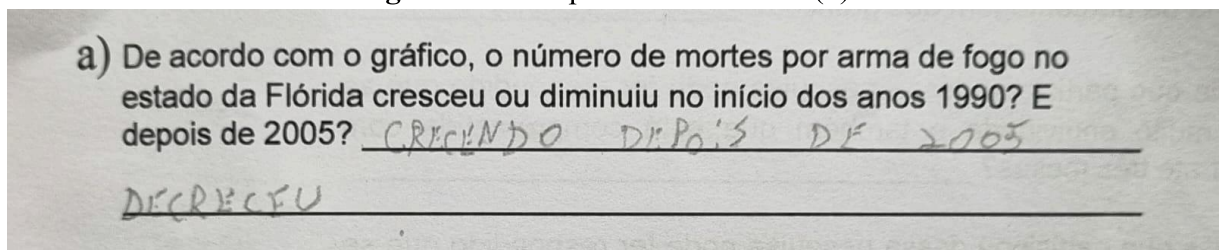 a) De acordo com o gráfico, o número de mortes por arma de fogo no
estado da Flórida cresceu ou diminuiu no início dos anos 1990? E
depois de 2005? CRECENDO DEPOIS DE 2005
DECRECEU